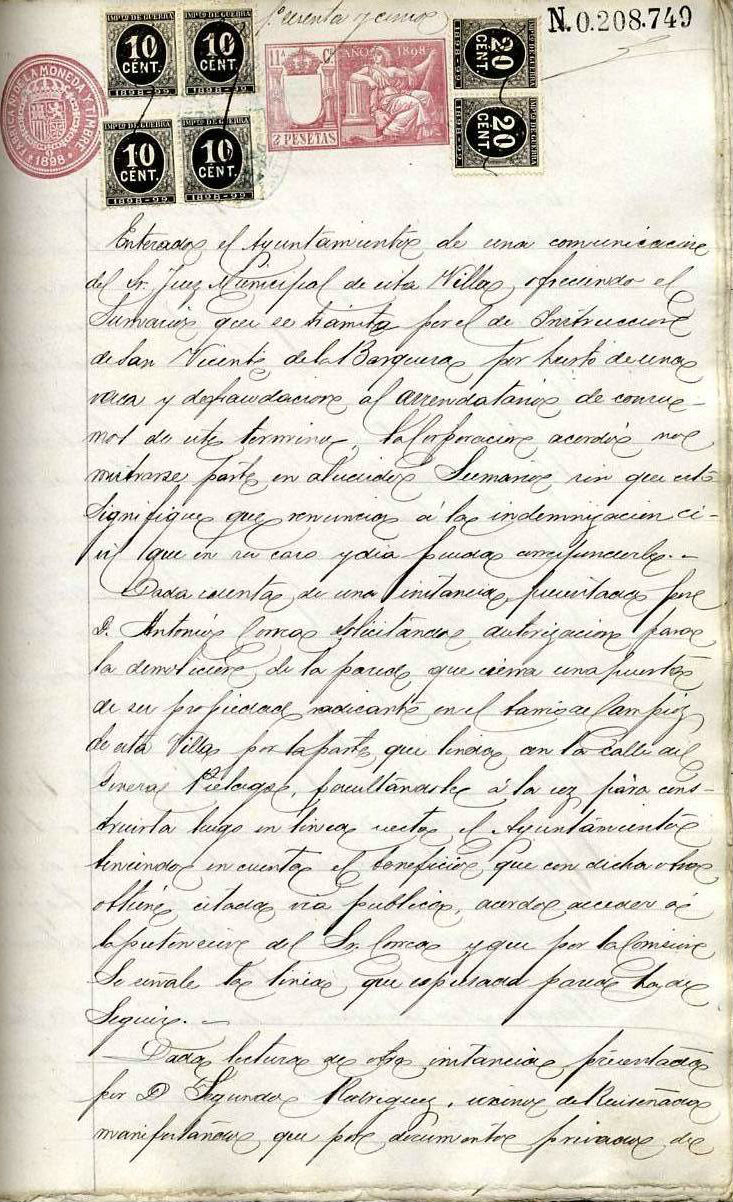 sesenta y cinco
N.0.208.749
FABRICA N. DE LA MONEDA Y TIMBRE
1898
IMPTO DE GUERRA
10 CENT.
1898-99
IMPTO DE GUERRA
10 CENT.
1898-99
IMPTO DE GUERRA
10 CENT.
1898-99
IMPTO DE GUERRA
10 CENT.
1898-99
11ª C. AÑO 1898
2 PESETAS
IMPTO DE GUERRA
20 CENT.
1898-99
IMPTO DE GUERRA
20 CENT.
1898-99
Enterado el Ayuntamiento de una comunicacion
del Sr. Juez Municipal de esta Villa, ofreciendo el
Sumario que se tramita por el de Instruccion
de San Vicente de la Barquera por hurto de una
vaca y defraudacion al arrendatario de consu-
mos de este termino, la Corporacion acordó no
mostrarse parte en aludido Sumario sin que esto
signifique que renuncia á la indemnizacion ci-
vil que en su caso y dia pueda corresponderle.-
Dada cuenta de una instancia presentada por
D. Antonio Correa solicitando autorizacion para
la demolicion de la pared que cierra una huerta
de su propiedad radicante en el barrio de Campios
de esta Villa por la parte que linda con la calle del
General Pielago, facultandole á la vez para cons-
truirla luego en linea recta, el Ayuntamiento
teniendo en cuenta el beneficio que con dicha obra
obtiene citada via publica, acordó acceder á
la pretension del Sr. Correa y que por la Comision
Se señale la linea que expresada pared ha de
Seguir.-
Dada lectura de otra instancia presentada
por D Segundo Rodriguez, vecino de Ruiseñada
manifestando que por documento privado de